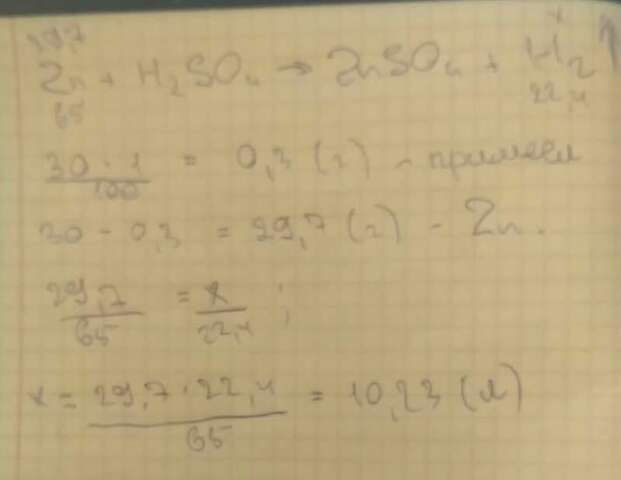 29,7 x
Zn + H₂SO₄ → ZnSO₄ + H₂↑
65 22,4
30 · 1 / 100 = 0,3 (г) - примеси
30 - 0,3 = 29,7 (г) - Zn.
29,7 / 65 = x / 22,4 ;
x = 29,7 · 22,4 / 65 = 10,23 (л)